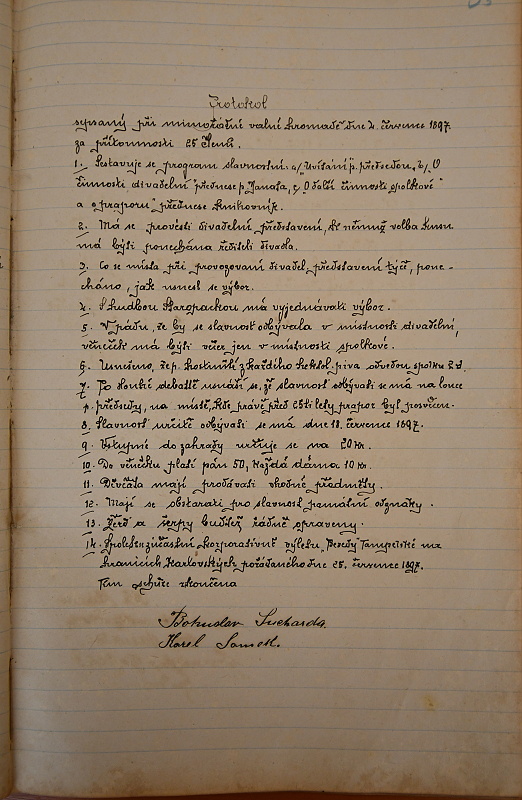 Protokol
sepsaný při mimořádné valné hromadě dne 4. července 1897.
za přítomnosti 25 členů.
1. Sestavuje se program slavnostní: a/ Uvítání p. předsedou, b/ „O
činnosti divadelní“ přednese p. Janata, c/ O další činnosti spolkové
a o praporu“ přednese knihovník.
2. Má se provésti divadelní představení, ku němuž volba kusu
má býti ponechána řediteli divadla.
3. Co se místa při provozování divadel. představení týče, pone-
cháno, jak usnesl se výbor.
4. S hudbou Staropackou má vyjednávati výbor.
5. V pádu, že by se slavnost odbývala v místnosti divadelní,
věneček má býti večer jen v místnosti spolkové.
6. Usneseno, že p. hostinský z každého hektol. piva odvedou spolku 2 zl.
7. Po dlouhé debattě usnáší se, že slavnost odbývati se má na louce
p. předsedy, na místě, kde právě před 25ti lety prapor byl posvěcen.
8. Slavnost určitě odbývati se má dne 18. července 1897.
9. Vstupné do zahrady určuje se na 20 kr.
10. Do věnečku platí pán 50, každá dáma 10 kr.
11. Děvčata mají prodávati vhodné předměty.
12. Mají se obstarati pro slavnost památní odznaky.
13. Žerď a šerpy buďtež řádně opraveny.
14. Spolek súčastní korporativně výletu „Besedy“ Tampelské na
hranicích Karlovských pořádaného dne 25. července 1897.
Tím schůze skončena
Bohuslav Sucharda.
Karel Samek.